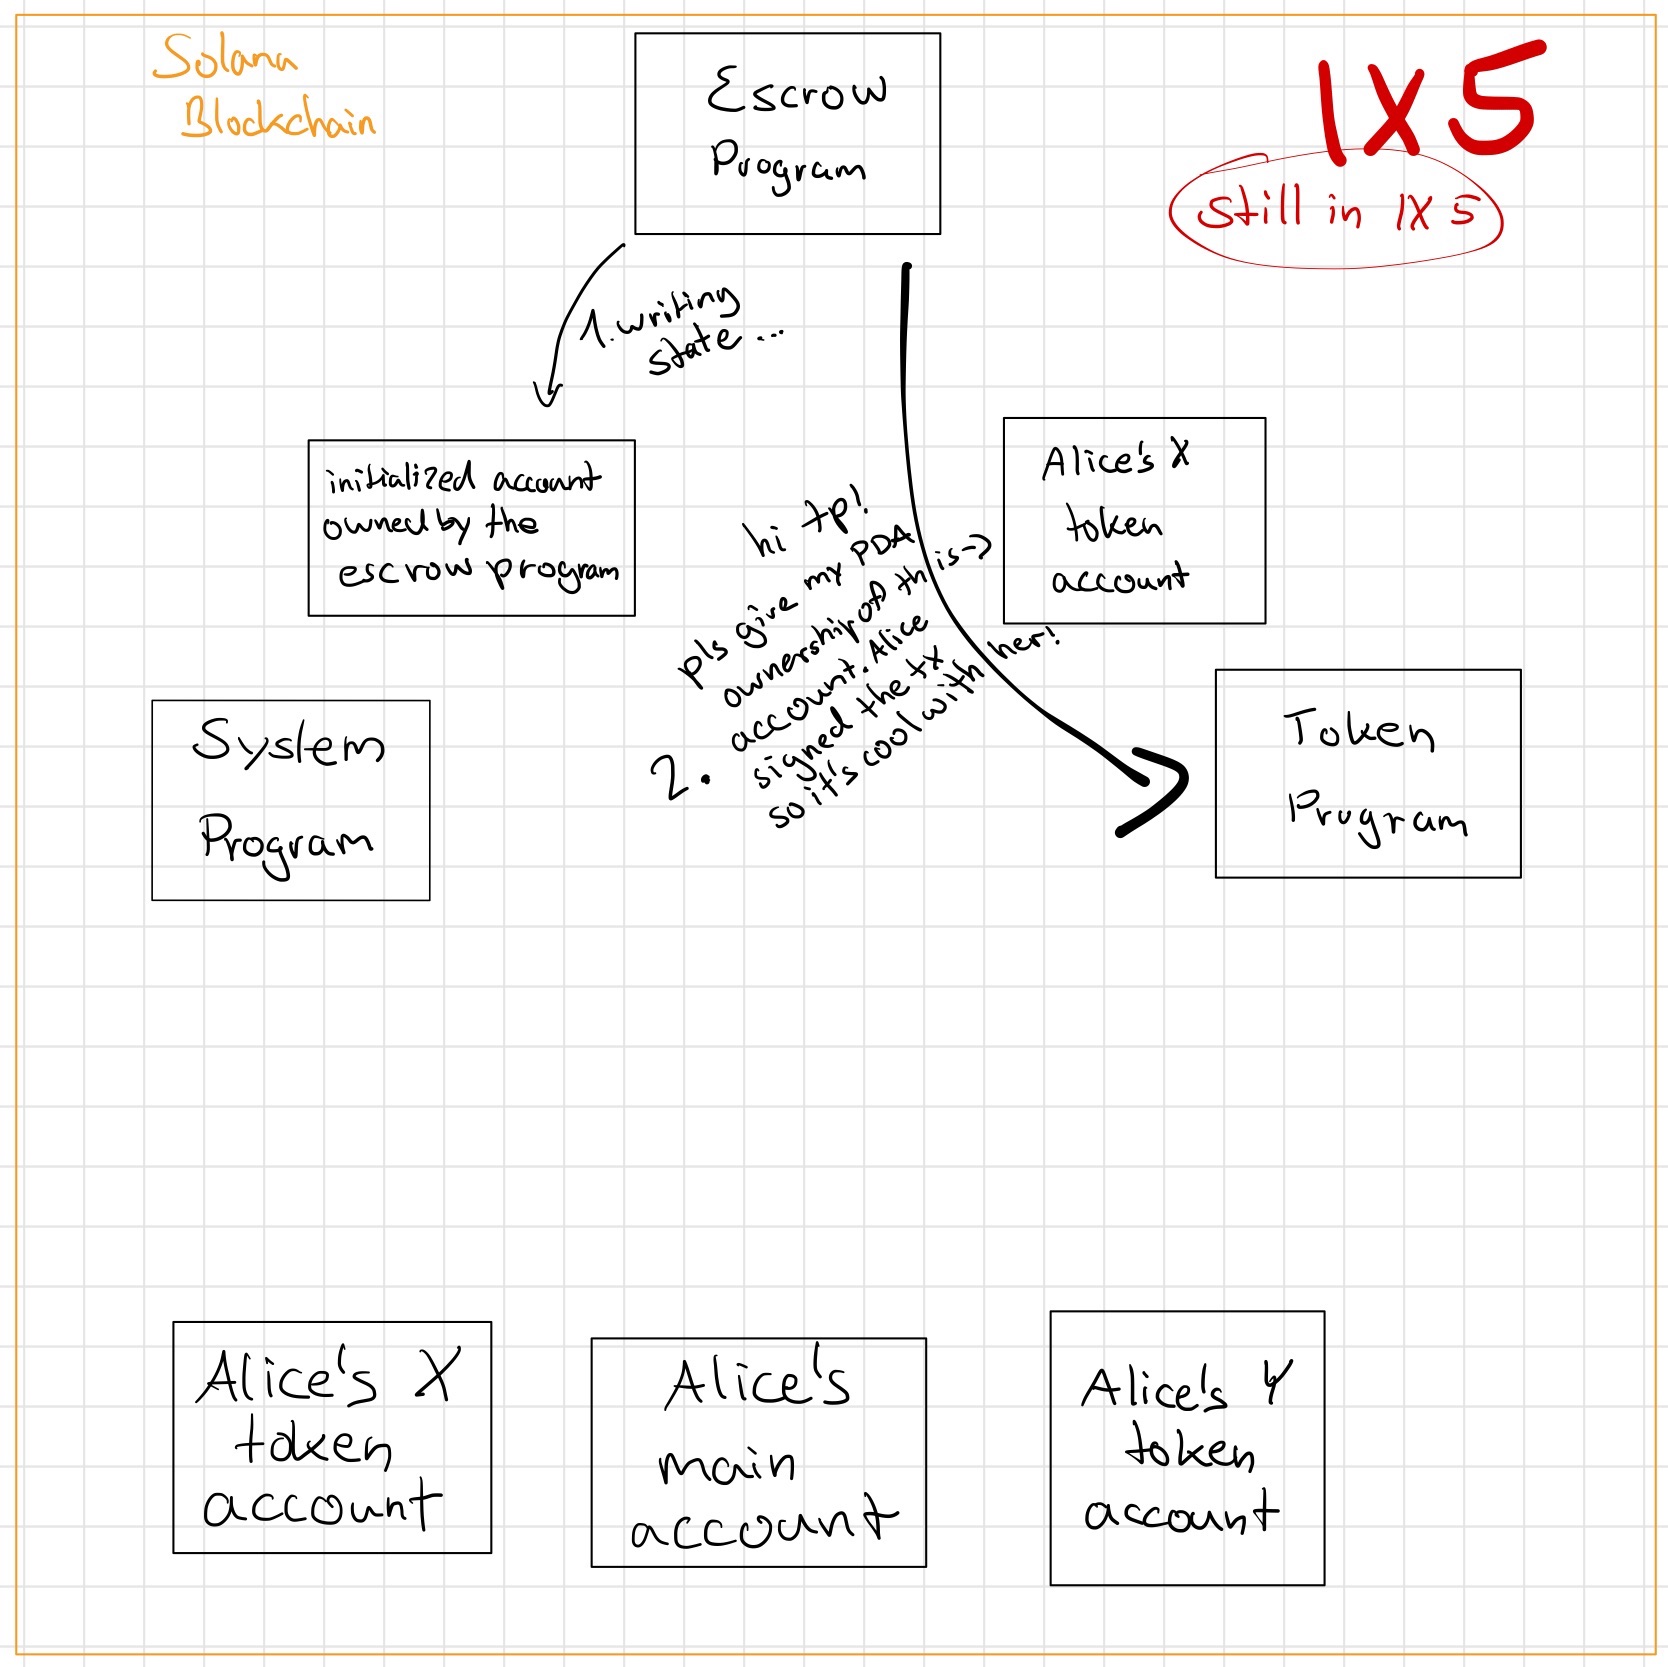 Solana
Blockchain
Escrow
Program
IX 5
still in IX 5
1. writing
state...
initialized account
owned by the
escrow program
Alice's X
token
account
hi tp!
pls give my PDA
ownership of this->
account. Alice
signed the tx
so it's cool with her!
2.
System
Program
Token
Program
Alice's X
token
account
Alice's
main
account
Alice's Y
token
account